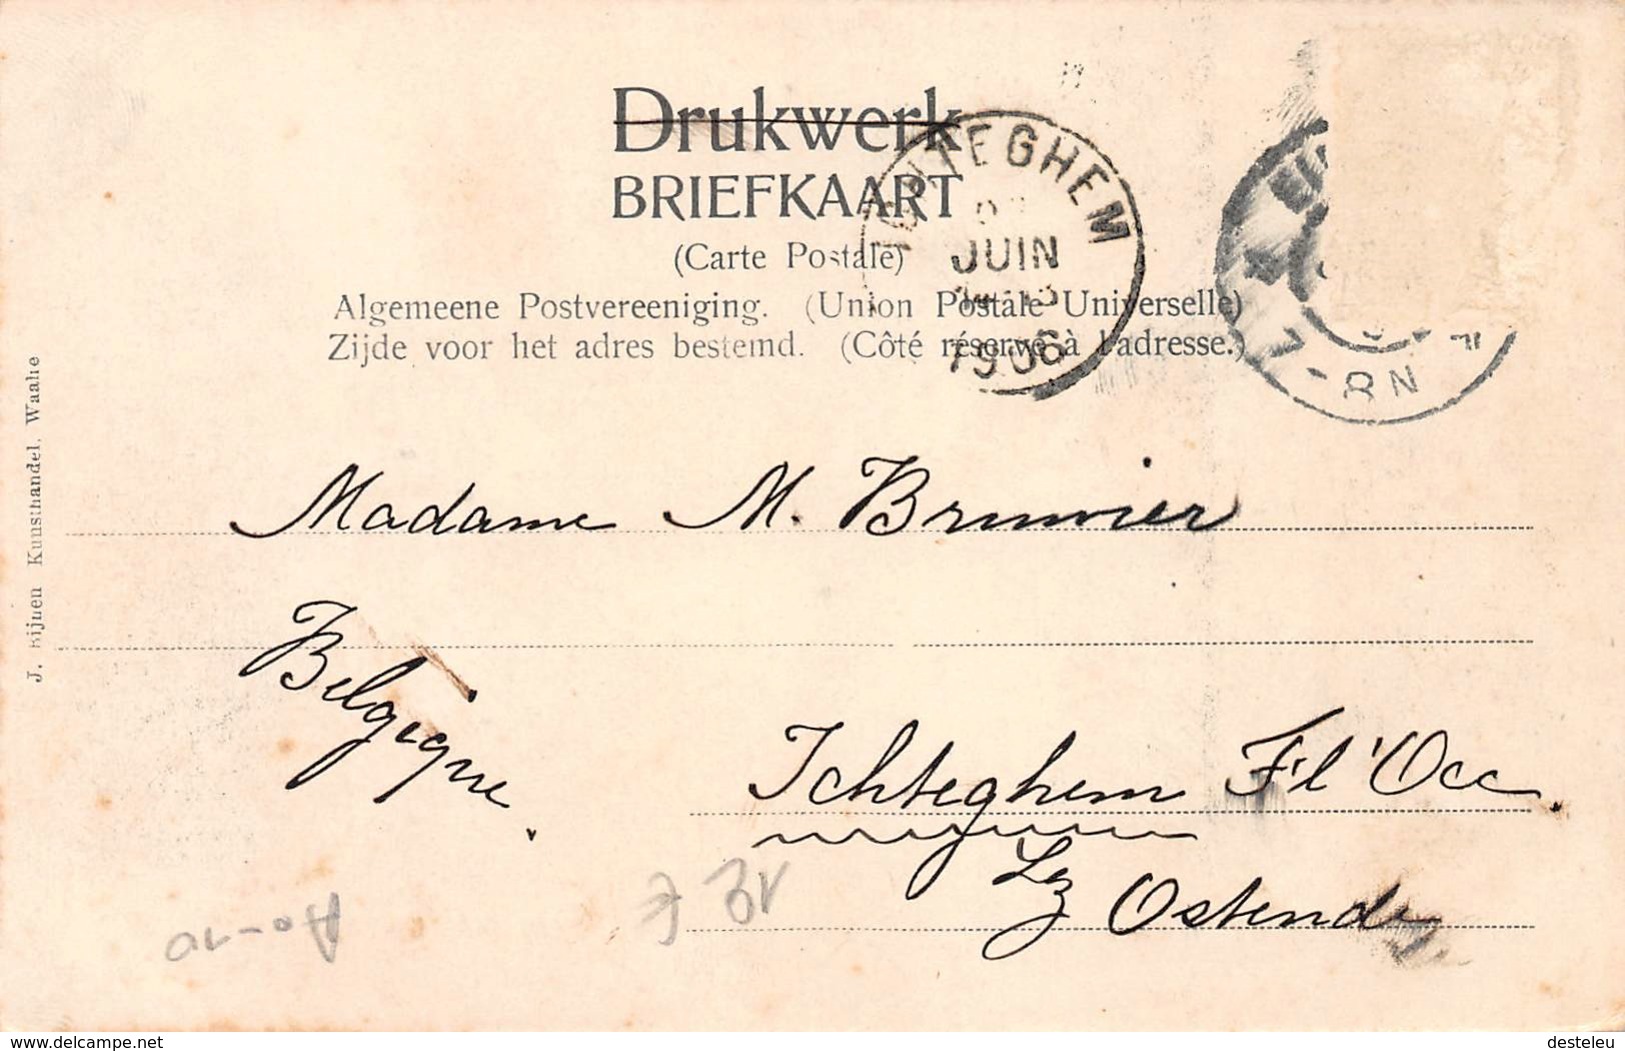 Drukwerk
BRIEFKAART
(Carte Postale)
Algemeene Postvereeniging. (Union Postale Universelle)
Zijde voor het adres bestemd. (Côté réservé à l'adresse.)
ICHTEGHEM
JUIN
1906
7-8 N
J. Bijnen Kunsthandel, Waalre
Madame M. Bruwier
Belgique.
Ichteghem Fl. Occ.
Lez Ostende
A0-10
12 €
delcampe.net
desteleu